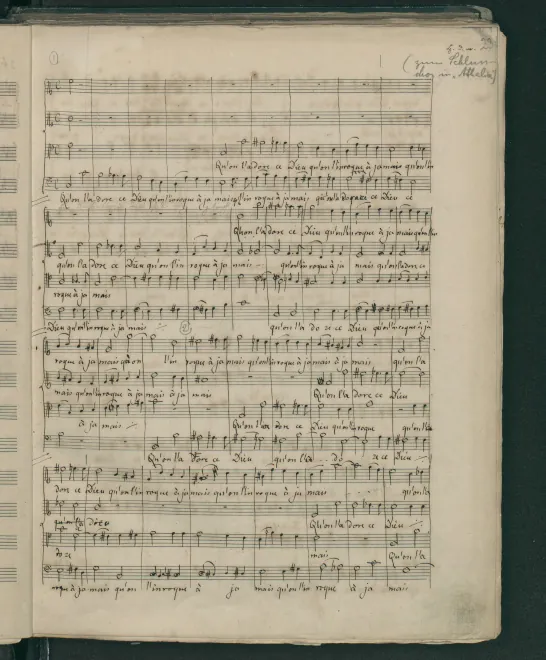 ①
(zum Schlum
Qu'on l'adore ce Dieu qu'on l'invoque à jamais qu'on l'in
Qu'on l'a dore ce Dieu qu'on l'invoque à ja mais l'in voque à ja mais qu'on l'a dore ce Dieu ce
Qu'on l'a dore ce Dieu qu'on l'invoque à ja mais qu'on l'in
qu'on l'a dore ce Dieu qu'on l'in voque à ja mais qu'on l'in voque à ja mais qu'on l'adore ce
voque à ja mais
Dieu qu'on l'invoque à ja mais qu'on l'a do re ce Dieu qu'on l'invoque à ja
②
voque à ja mais qu'on l'in voque à jamais qu'on l'invoque à jamais à ja mais qu'on l'a
mais qu'on l'invoque à ja mais à ja mais Qu'on l'a dore ce Dieu
à ja mais Qu'on l'a dore ce Dieu qu'on l'invoque qu'on l'in
Qu'on l'a dore ce Dieu qu'on l'a do re ce Dieu
dore ce Dieu qu'on l'in voque à jamais qu'on l'in voque à ja mais qu'on l'a
qu'on l'a dore Qu'on l'a dore ce Dieu
dore mais Qu'on l'a
voque à ja mais qu'on l'invoque à ja mais qu'on l'in voque à ja mais